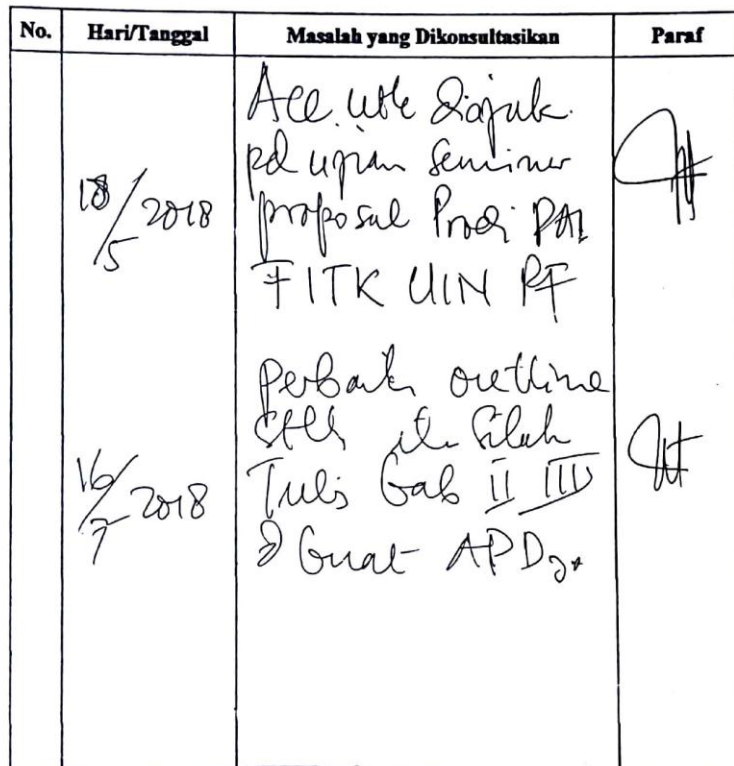 No. Hari/Tanggal Masalah yang Dikonsultasikan Paraf
Acc utk diajuk
pd ujian Seminar
18/5 2018 proposal Prodi PAI
FITK UIN RF
Perbaiki outline
Stlh itu Silah
16/7 2018 Tulis bab II III
& buat APD